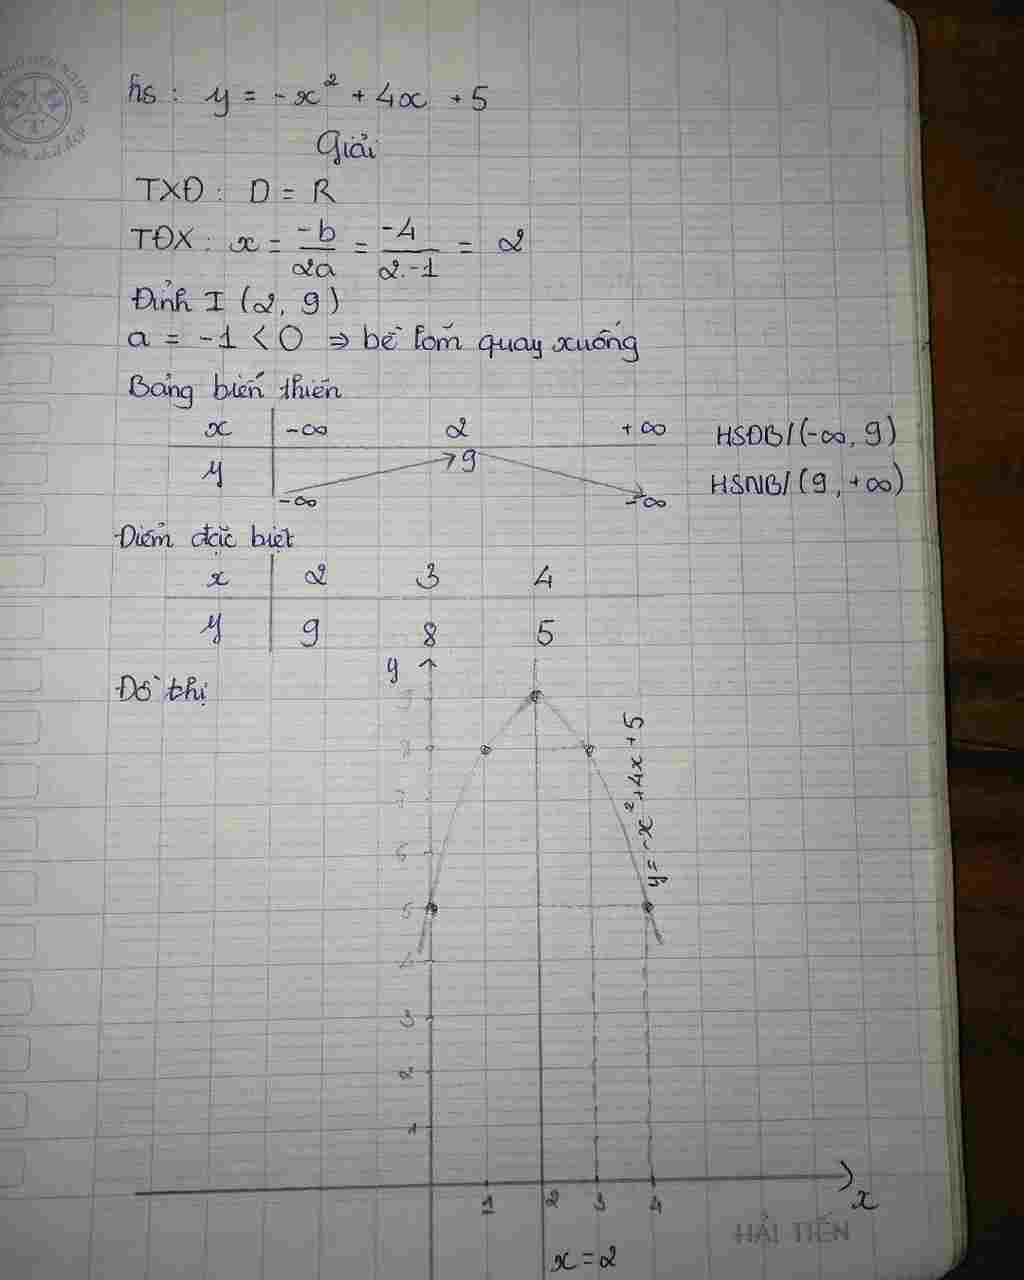 hs : y = -x² + 4x + 5
Giải
TXĐ : D = R
TĐX : x = -b/2a = -4/2.-1 = 2
Đỉnh I (2, 9)
a = -1 < 0 ⇒ bề lõm quay xuống
Bảng biến thiên
x | -∞ 2 +∞ HSĐB/(-∞, 9)
y | -∞ 9 -∞ HSNB/(9, +∞)
Điểm đặc biệt
x | 2 3 4
y | 9 8 5
Đồ thị
y
6
5
4
3
2
1
y = -x² + 4x + 5
1 2 3 4 x
x = 2
HẢI TIẾN